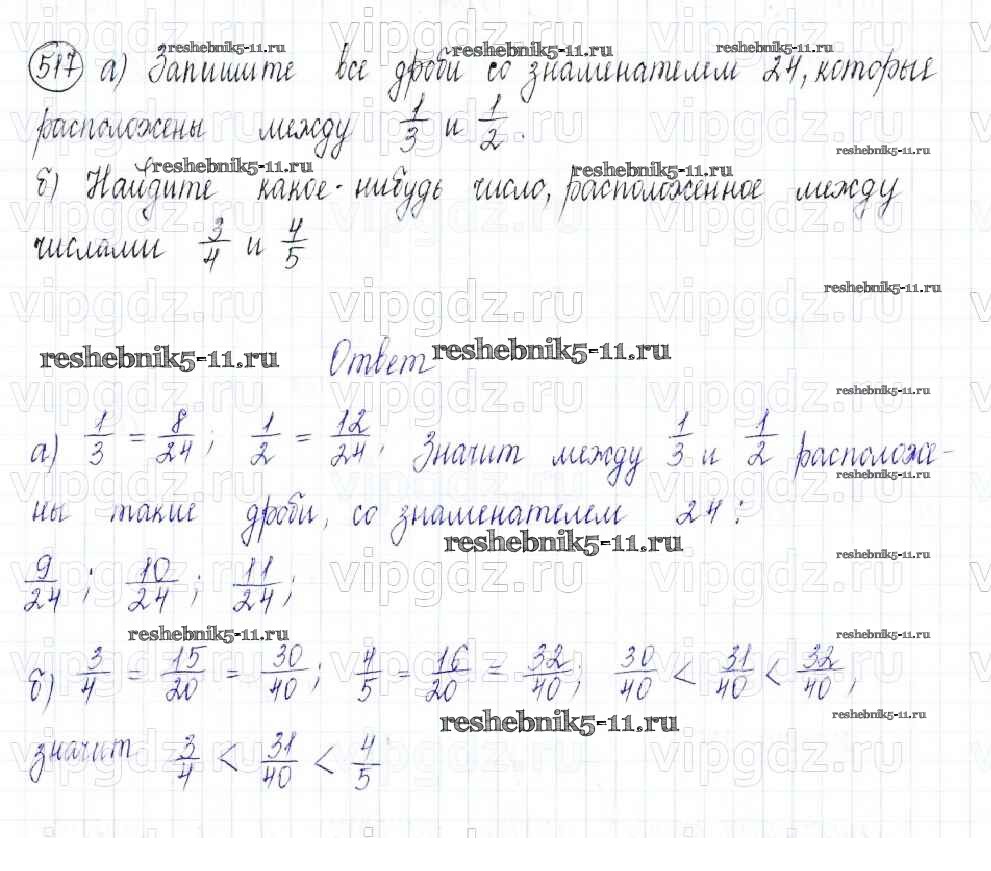 517 а) Запишите все дроби со знаменателем 24, которые
расположены между 1/3 и 1/2.
б) Найдите какое-нибудь число, расположенное между
числами 3/4 и 4/5
Ответ
а) 1/3 = 8/24; 1/2 = 12/24. Значит между 1/3 и 1/2 расположе-
ны такие дроби, со знаменателем 24:
9/24; 10/24; 11/24;
б) 3/4 = 15/20 = 30/40; 4/5 = 16/20 = 32/40; 30/40 < 31/40 < 32/40;
значит 3/4 < 31/40 < 4/5
reshebnik5-11.ru
vipgdz.ru